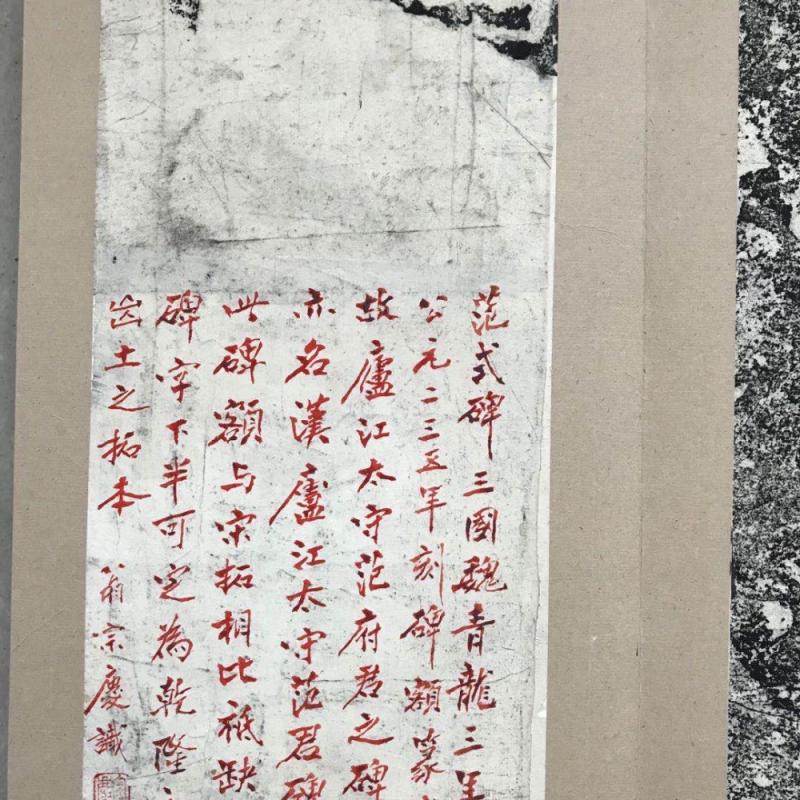 范式碑三國魏青龍三年
公元二三五年刻碑額篆
故廬江太守范府君之碑
亦名漢廬江太守范君碑
此碑額与宋拓相比祗缺
碑字下半可定為乾隆
出土之拓本 翁宗慶識